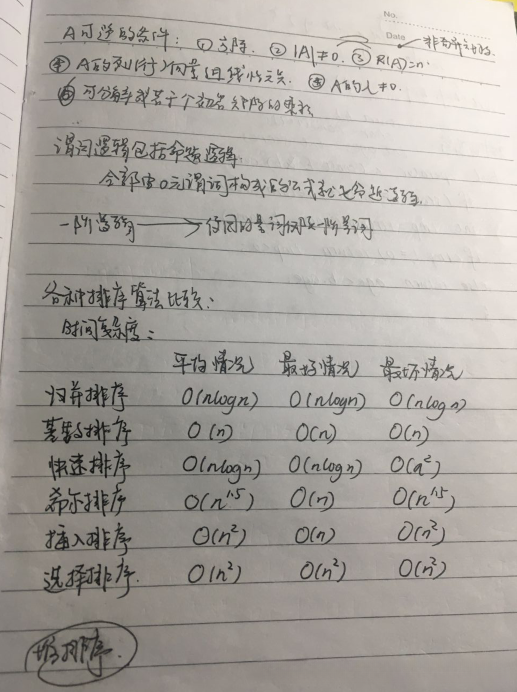 No.
Date
非奇异方阵
A可逆的条件: ① 方阵. ② |A|≠0. ③ R(A)=n
④ A的列(行)向量组线性无关. ⑤ A的λ≠0.
⑥ 可分解成若干个初等矩阵的乘积
谓词逻辑包括命题逻辑
全部由0元谓词构成的公式就是命题逻辑.
一阶逻辑 → 使用的量词仅限一阶量词
各种排序算法比较:
时间复杂度:
平均情况 最好情况 最坏情况
归并排序 O(nlogn) O(nlogn) O(nlogn)
基数排序 O(n) O(n) O(n)
快速排序 O(nlogn) O(nlogn) O(n²)
希尔排序 O(n^1.5) O(n) O(n^1.5)
插入排序 O(n²) O(n) O(n²)
选择排序. O(n²) O(n²) O(n²)
堆排序.